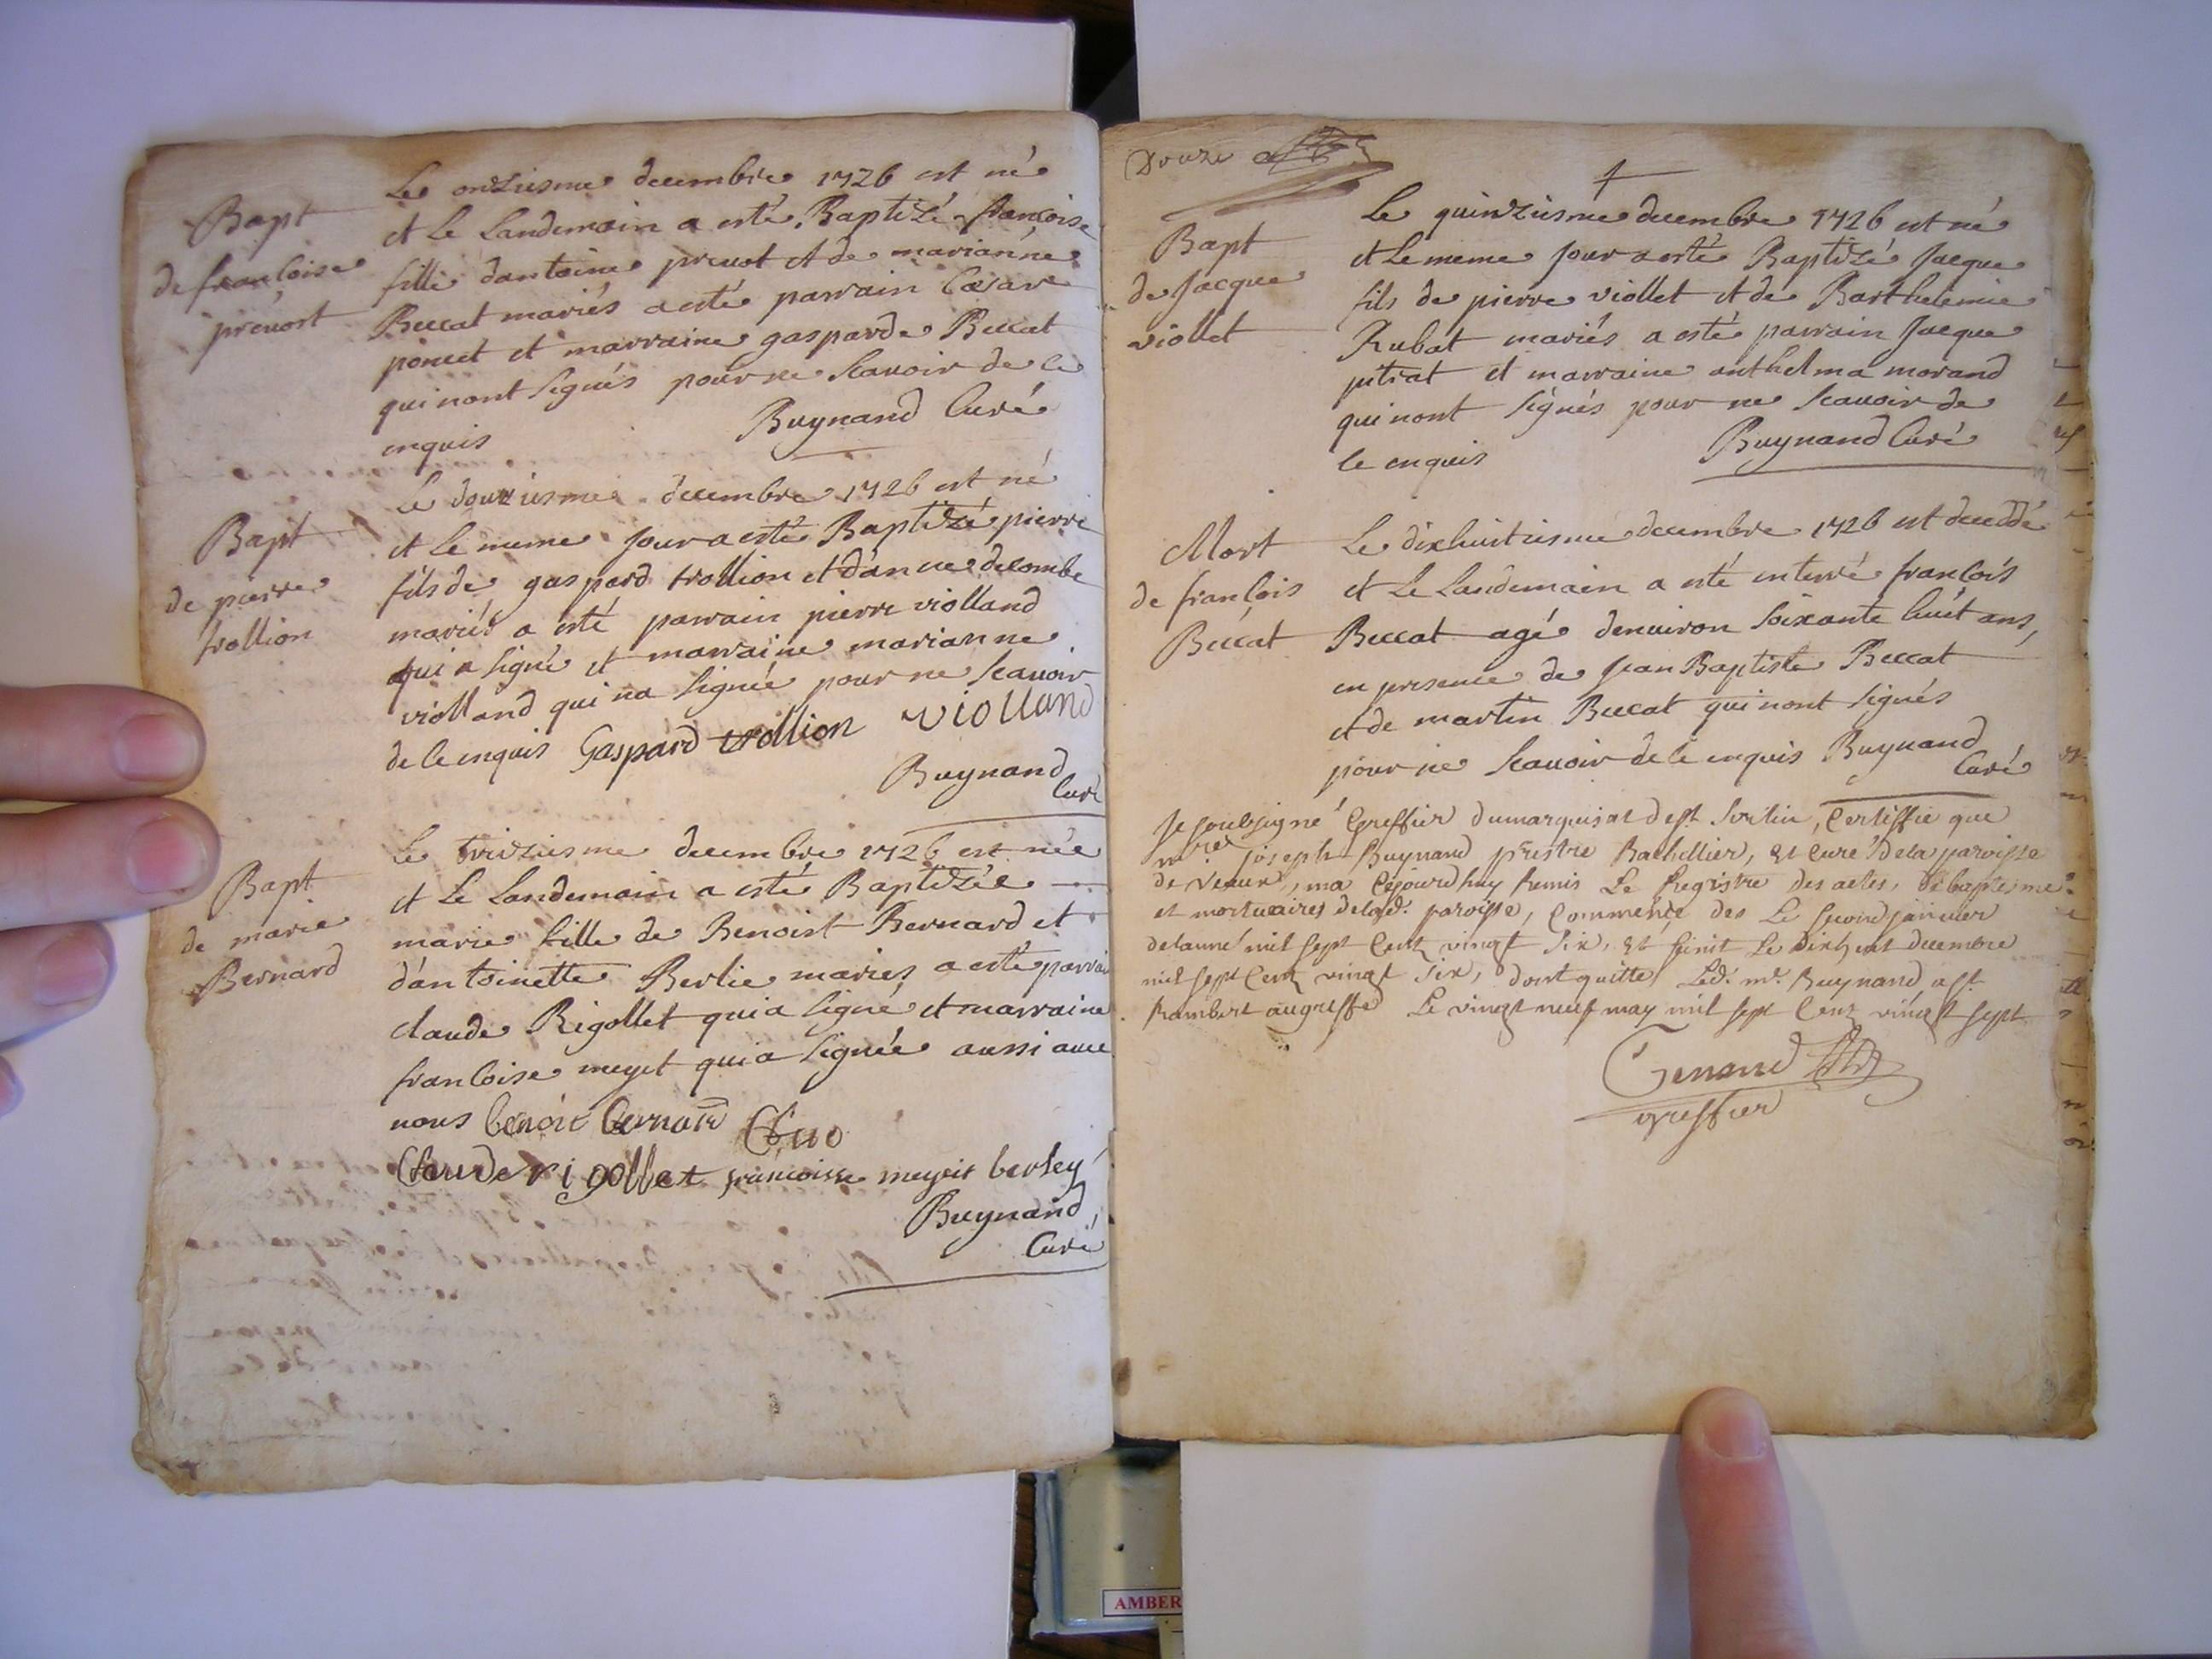 Bapt
de francoise
prevost
Le onziesme decembre 1726 est né
et Le Landemain a esté Baptizé francoise
fille dantoine prevost et de marianne
Beccat mariés a esté parrain Cæsare
poncet et marraine gasparde Beccat
qui nont signés pour ne scavoir de ce
enquis
Buynand Curé
Bapt
de pierre
trollion
Le douziesme decembre 1726 est né
et Le meme jour a esté Baptizé pierre
fils de gaspard trollion et danne delombe
mariés a esté parrain pierre violland
qui a signé et marraine marianne
violland qui na signée pour ne scavoir
de le enquis Gaspard trollion violland
Buynand
Curé
Bapt
de marie
Bernard
Le treiziesme decembre 1726 est née
et Le Landemain a esté Baptizée
marie fille de Benoist Bernard et
dantoinette Berlie maries a esté parrain
claude Rigollet qui a signé et marraine
francoise meyet qui a signée aussi avec
nous benoit bernard
Claude rigollet francoise meyeit berley
Buynand
Curé
Douze
Bapt
de Jacque
viollet
Le quinziesme decembre 1726 est né
et Le meme jour a esté Baptizé Jacque
fils de pierre viollet et de Barthelemie
Rubat mariés a esté parrain Jacque
pitrat et marraine anthelma morand
qui nont signés pour ne scavoir de
le enquis
Buynand Curé
Mort
de francois
Beccat
Le dixhuitiesme decembre 1726 est decedé
et Le Landemain a esté enterré francois
Beccat agé denviron soixante huit ans,
en presence de Jean Baptiste Beccat
et de martin Beccat qui nont signés
pour ne scavoir de le enquis Buynand
Curé
Je soubsigné Greffier du marquisat de st. Sorlin, Certiffie que
mre. joseph Buynand prestre Bachellier, et curé de la paroisse
de Vaux, ma cejourdhuy remis Le Registre des actes, de baptesme
et mortuaires delad. paroisse, Commencé des Le second janvier
delanné mil sept cent vingt six, et finit Le dixhuit decembre
mil sept Cent vingt six, dont quitte Led. mr. Buynand a st.
Rambert au greffe Le vingt neuf may mil sept Cent vingt sept
Genand
greffier
AMBER